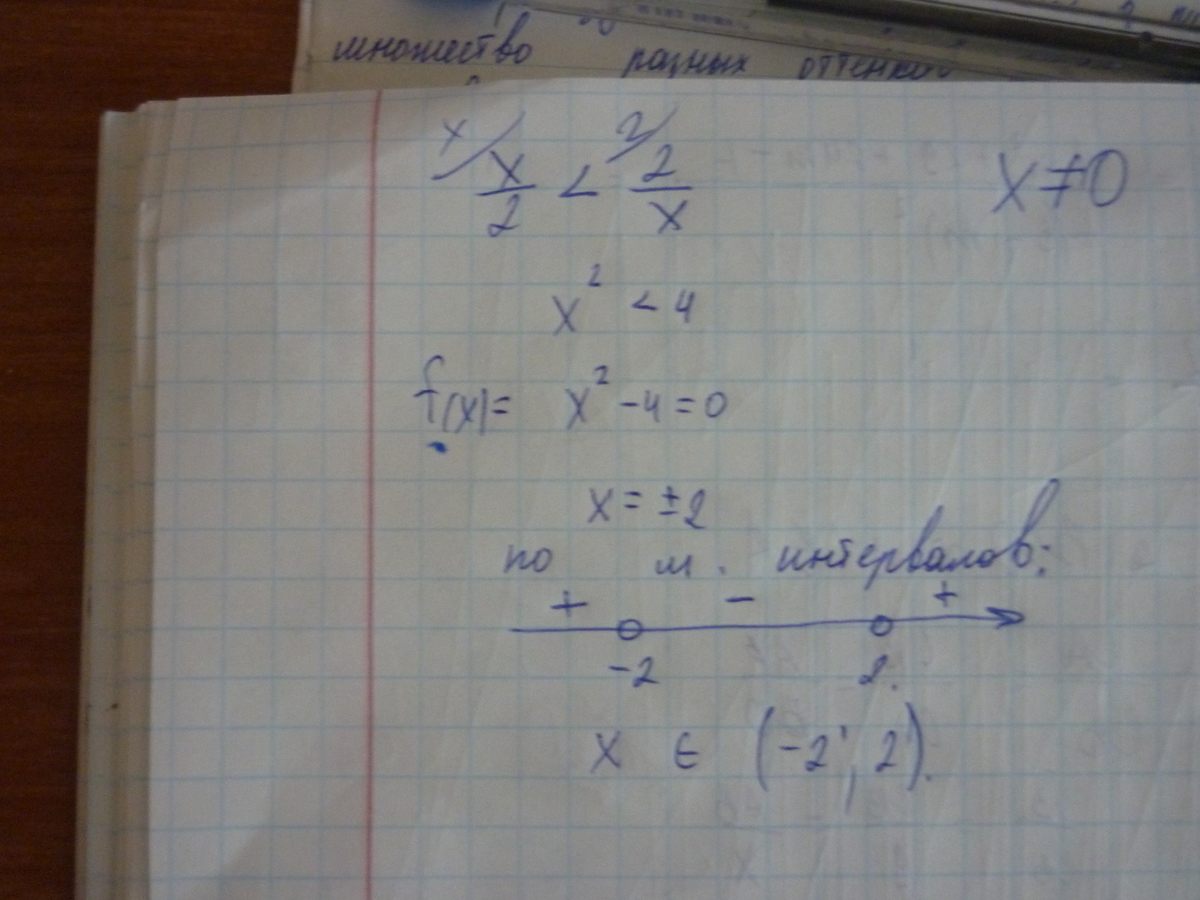 множество разных оттенков
x/ x/2 < 2/ 2/x x ≠ 0
x² < 4
f(x) = x² - 4 = 0
x = ± 2
по м. интервалов:
+ - +
-2 2.
x ∈ (-2; 2).